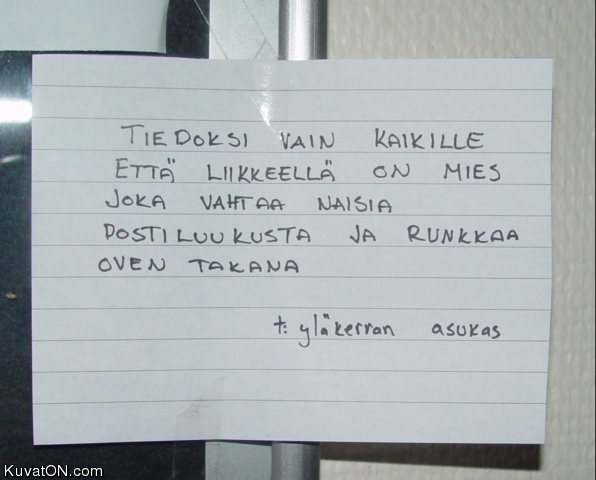 TIEDOKSI VAIN KAIKILLE
ETTÄ LIIKKEELLÄ ON MIES
JOKA VAHTAA NAISIA
POSTILUUKUSTA JA RUNKKAA
OVEN TAKANA
t: yläkerran asukas
KuvatON.com